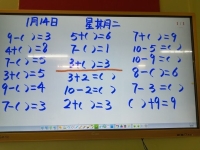 1月14日 星期二
9-( )=3 5+( )=6 7+( )=9
4+( )=8 7-( )=1 10-5=( )
7-( )=5 3+( )=3 10-9=( )
3+( )=5 3+2=( ) 8-( )=6
9-( )=4 10-2=( ) 7-3=( )
7-( )=3 2+( )=3 ( )+9=9